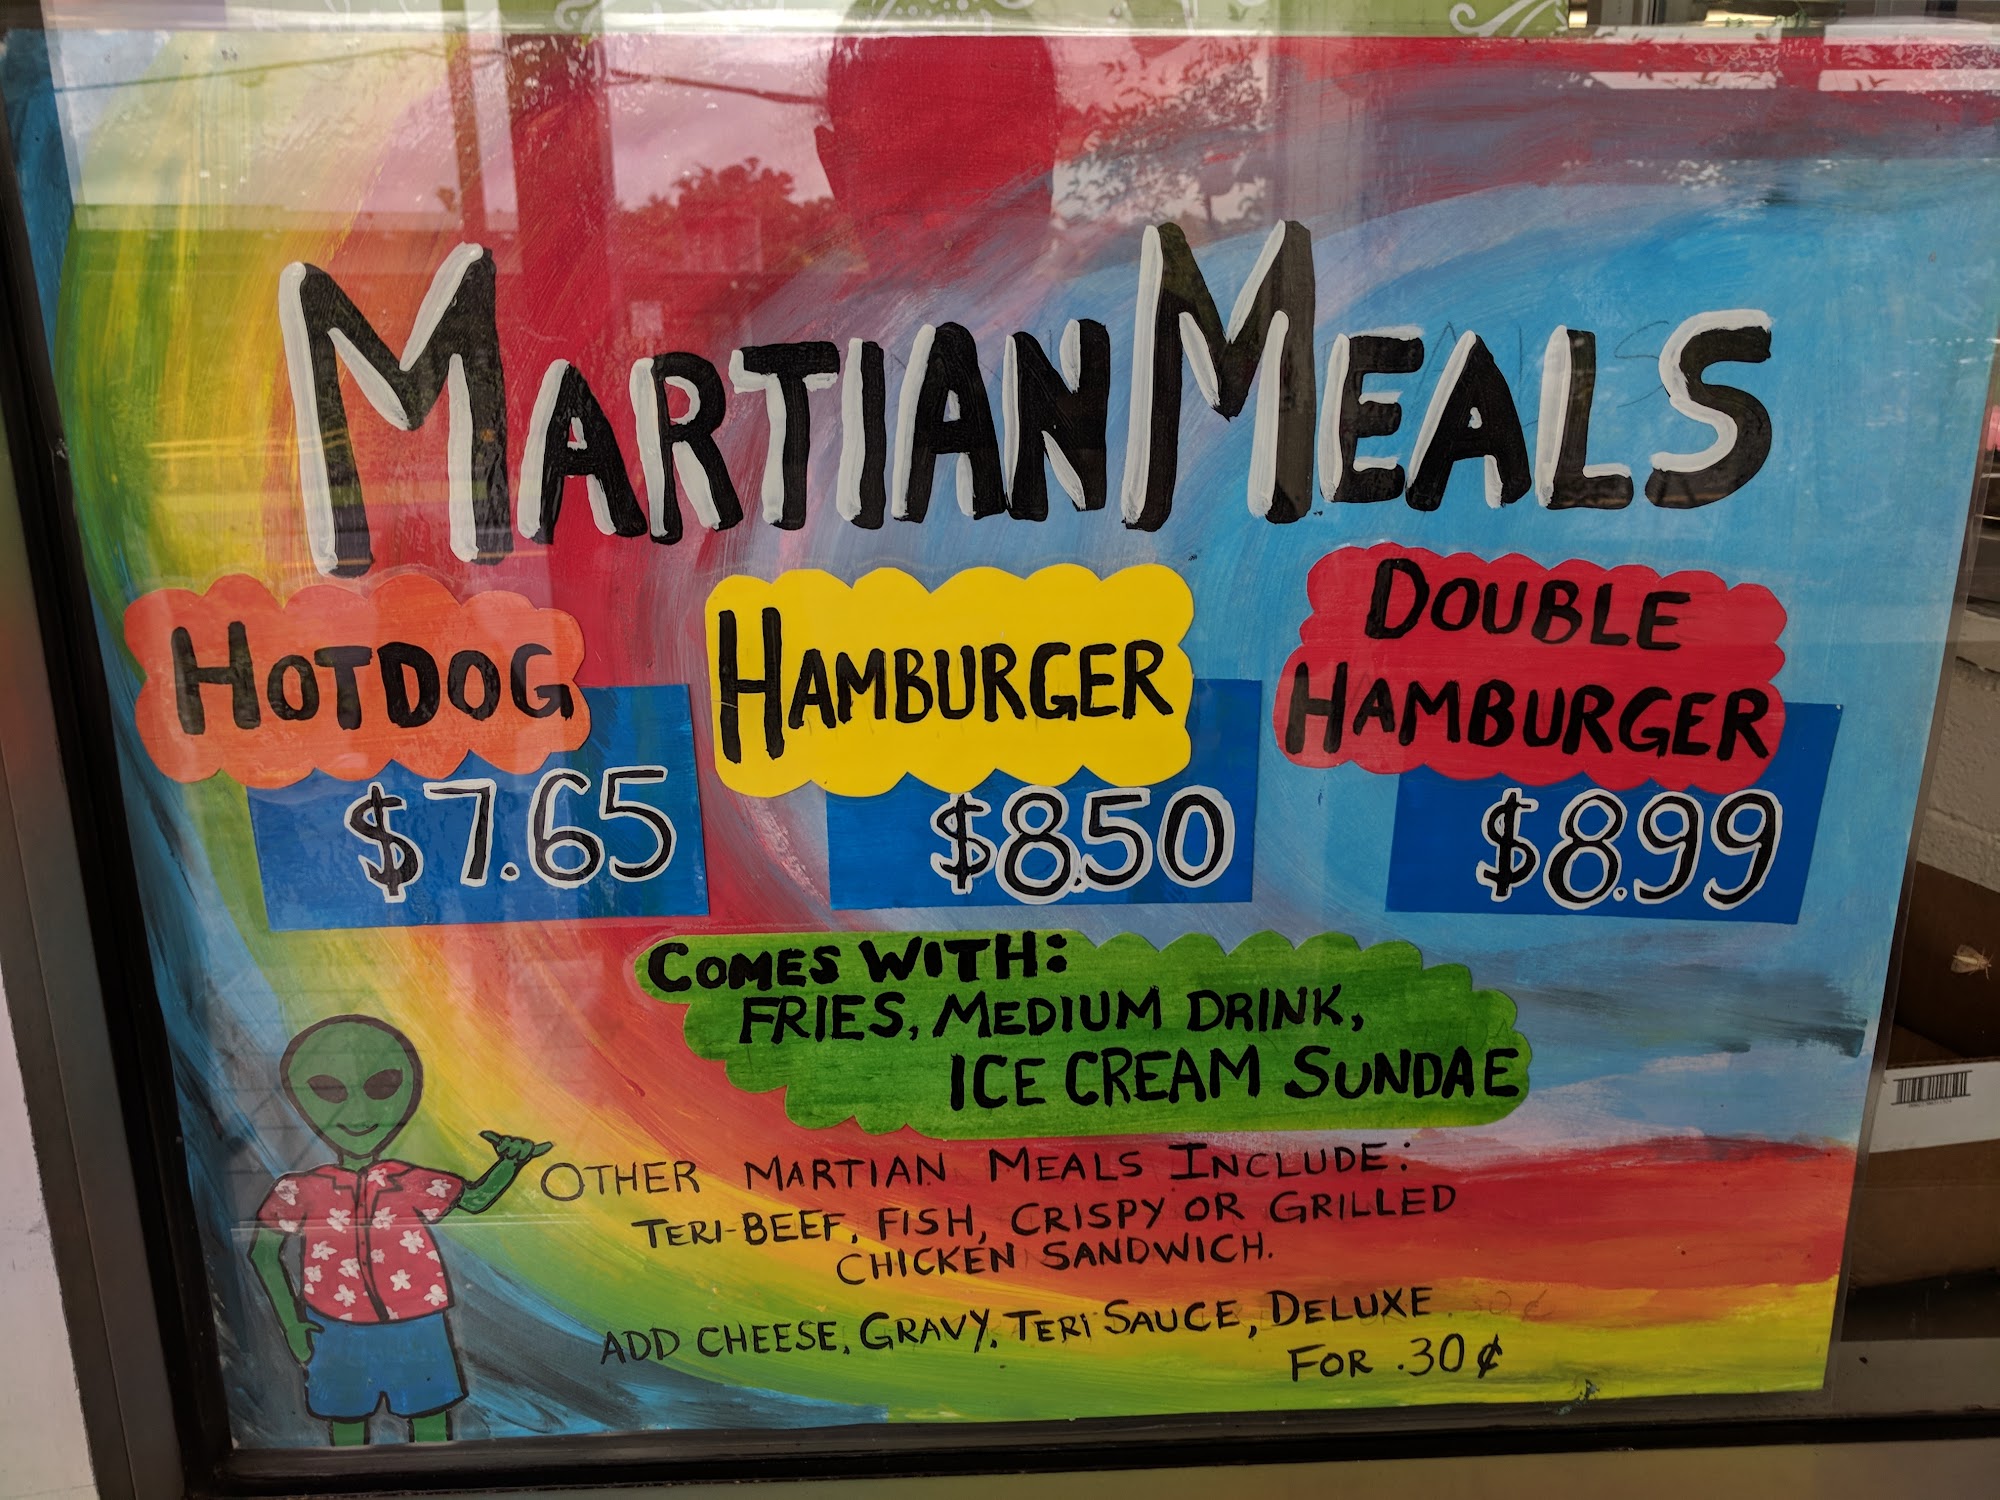 MARTIAN MEALS
HOTDOG
$7.65
HAMBURGER
$8.50
DOUBLE
HAMBURGER
$8.99
COMES WITH:
FRIES, MEDIUM DRINK,
ICE CREAM SUNDAE
OTHER MARTIAN MEALS INCLUDE:
TERI-BEEF, FISH, CRISPY OR GRILLED
CHICKEN SANDWICH.
ADD CHEESE, GRAVY, TERI SAUCE, DELUXE
FOR .30¢